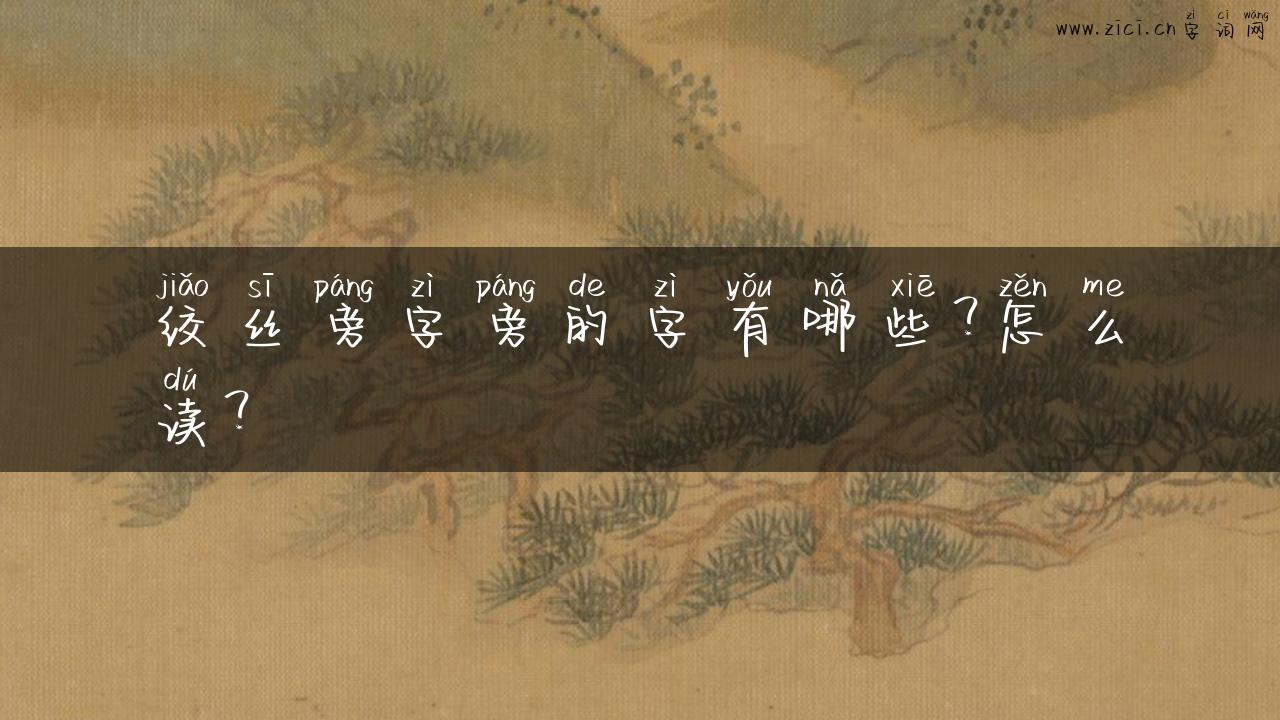 zì cí wǎng
www.zici.cn 字 词 网
jiǎo sī páng zì páng de zì yǒu nǎ xiē zěn me
绞 丝 旁 字 旁 的 字 有 哪 些 ？ 怎 么
dú
读 ？